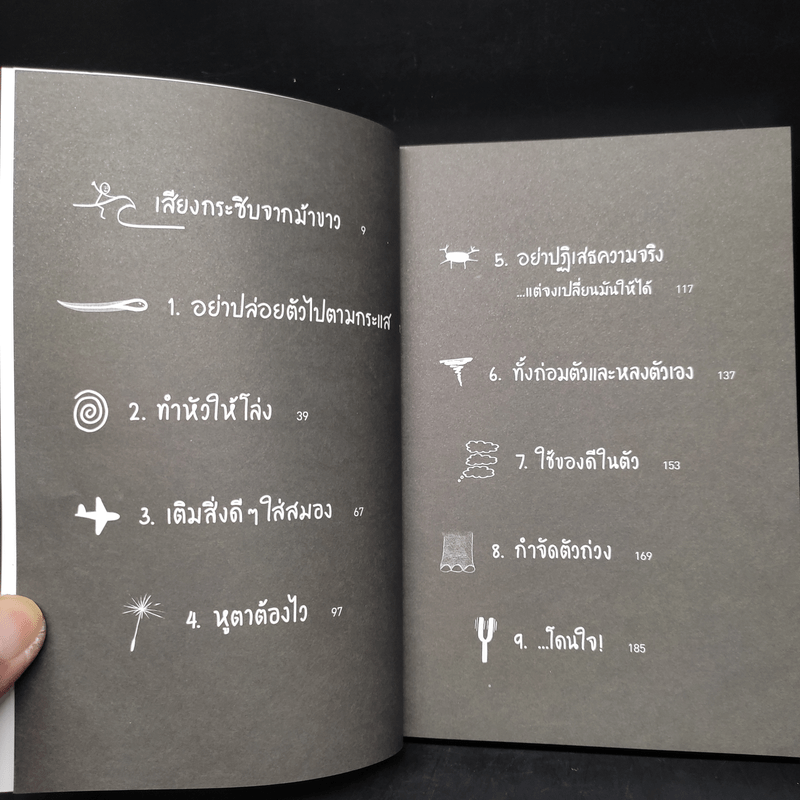 เสียงกระซิบจากม้าขาว 9
1. อย่าปล่อยตัวไปตามกระแส
2. ทำหัวให้โล่ง 39
3. เติมสิ่งดีๆใส่สมอง 67
4. หูตาต้องไว 97
5. อย่าปฏิเสธความจริง
...แต่จงเปลี่ยนมันให้ได้ 117
6. ทั้งถ่อมตัวและหลงตัวเอง 137
7. ใช้ของดีในตัว 153
8. กำจัดตัวถ่วง 169
9. ...โดนใจ! 185